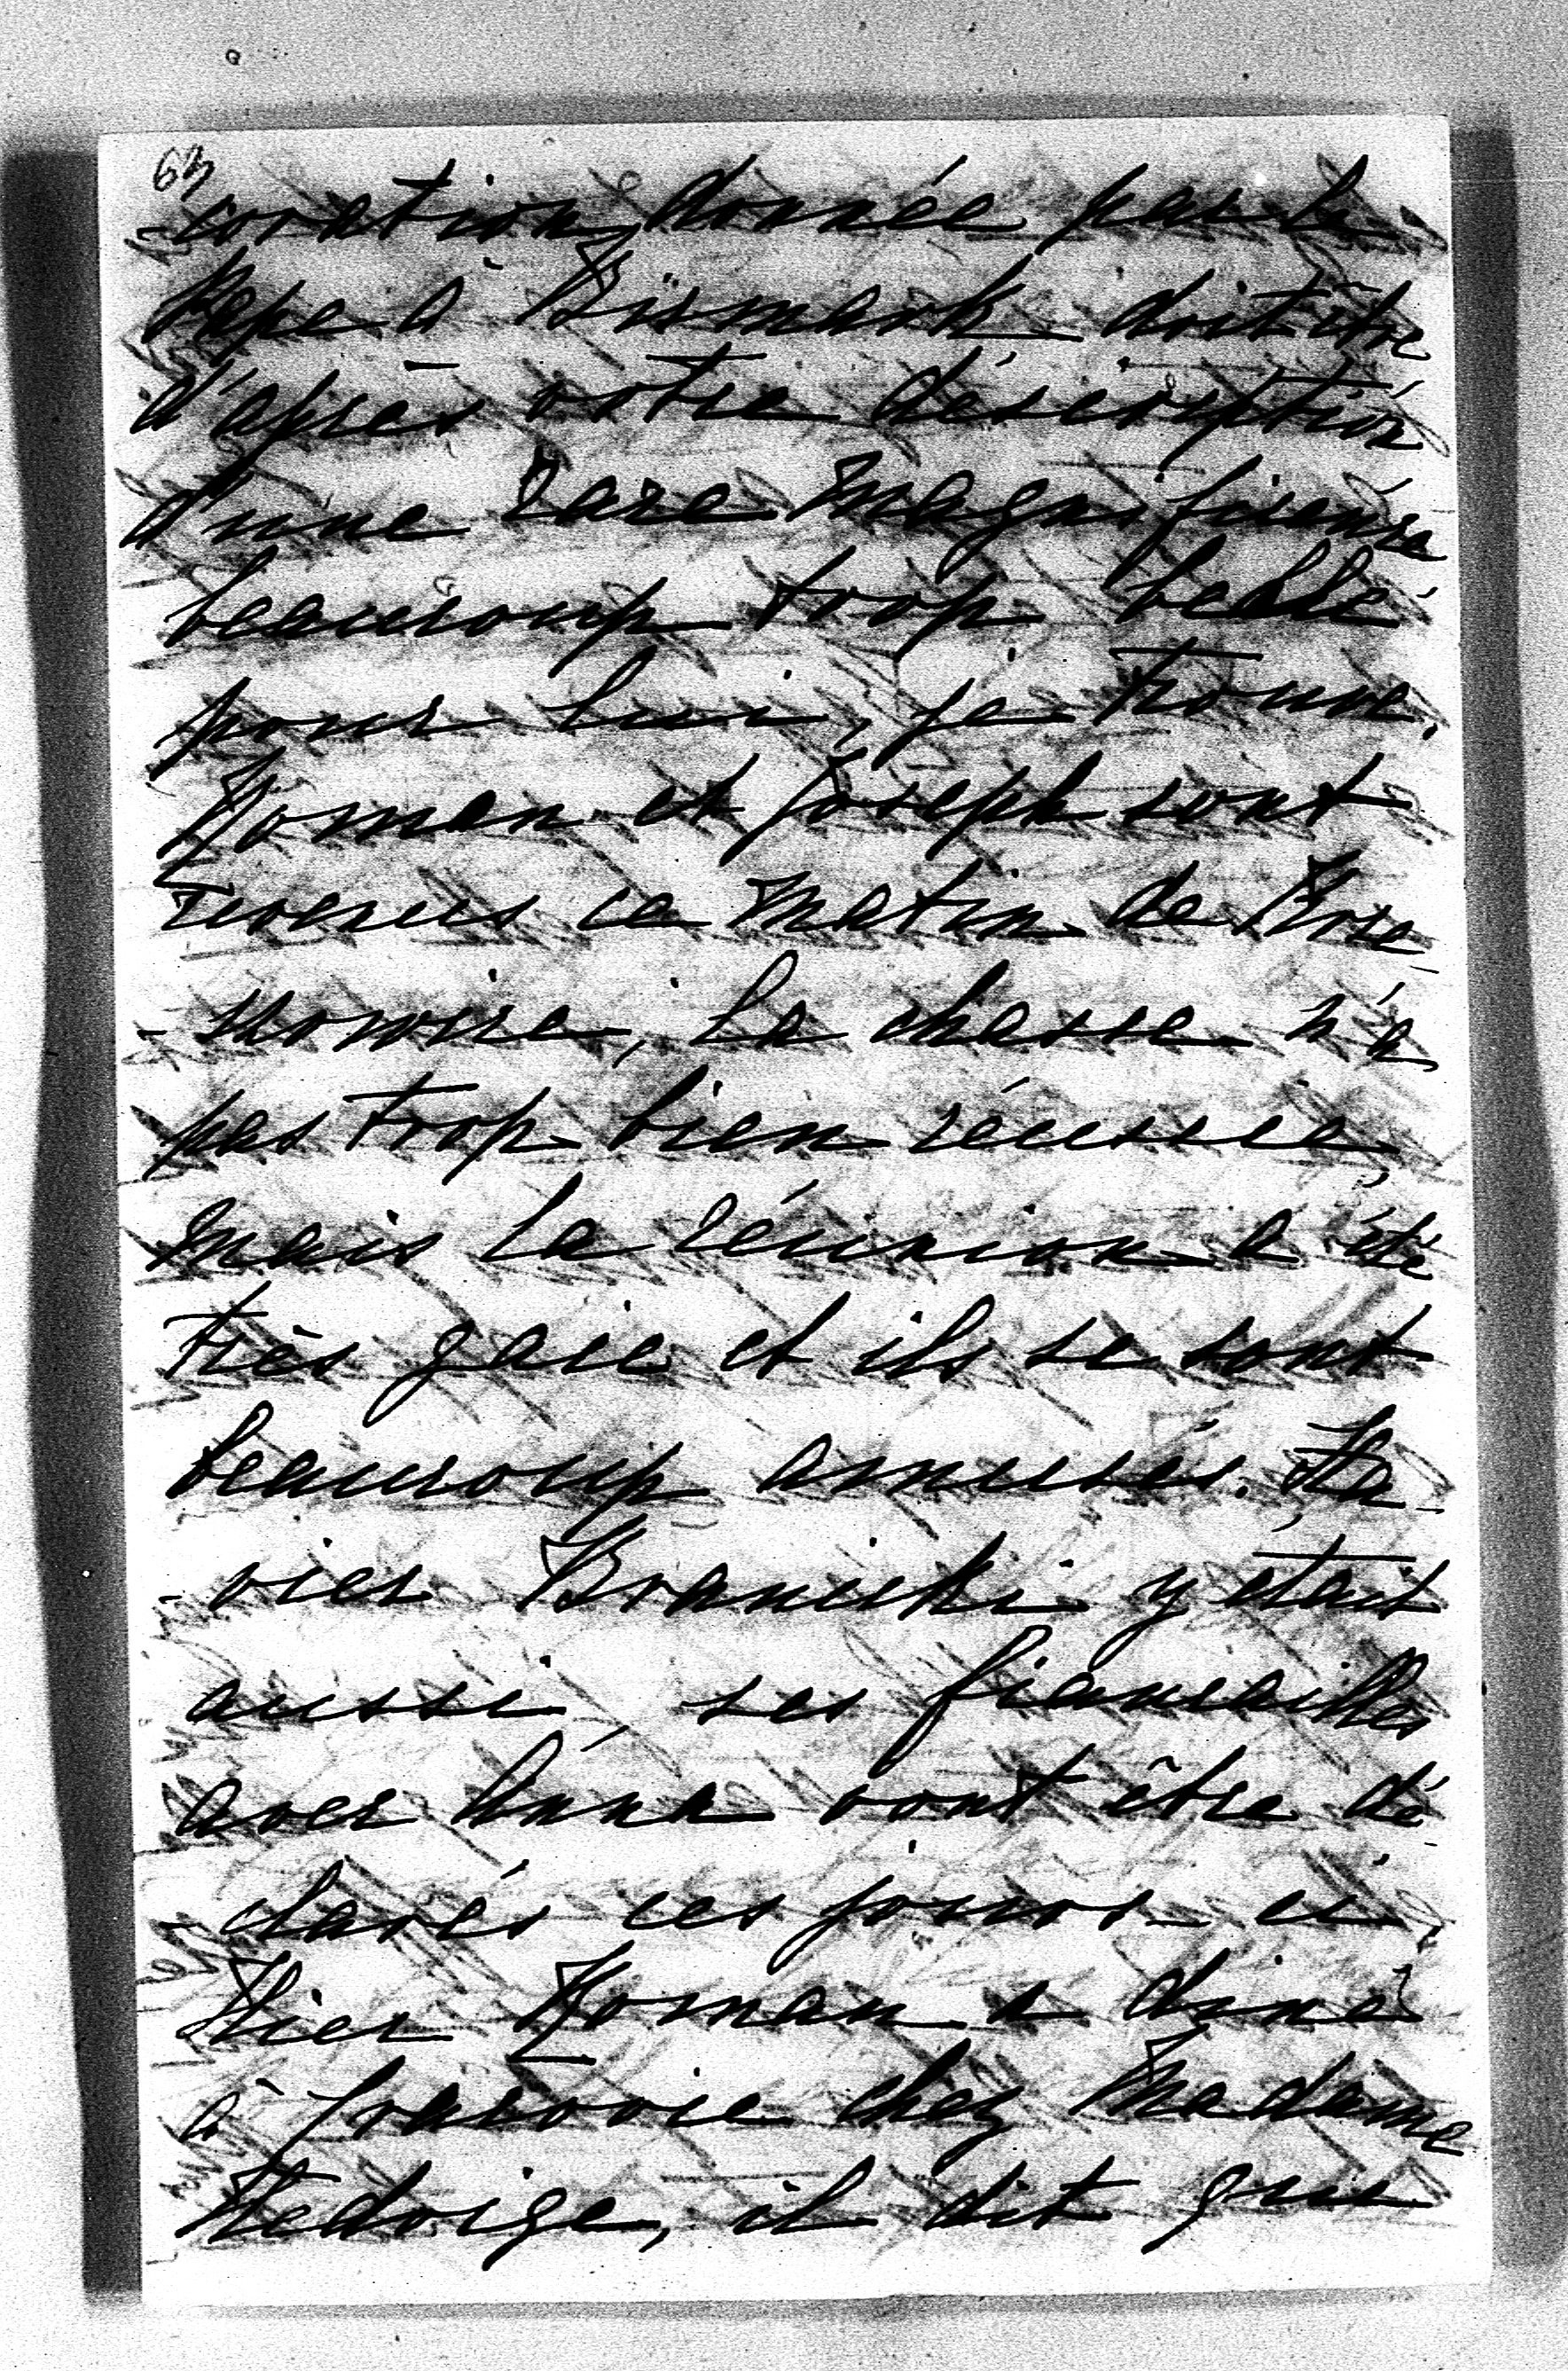 63
-coration donnée par le
Pape à Bismark doit être
d'après votre déscription
d'une rare magnificence
beaucoup trop belle
pour lui, je trouve.
Roman et Joseph sont
revenus ce matin de Krze
-szowice, la chasse n'a
pas trop bien réussie,
mais la réunion a été
très gaie et ils se sont
beaucoup amusés. Xa
-vier Branicki y était
aussi, ses fiançailles
avec Anna vont être dé
-clarés ces jours-ci.
Hier Roman a diné
à Cracovie chez Madame
Hedvige, il dit que